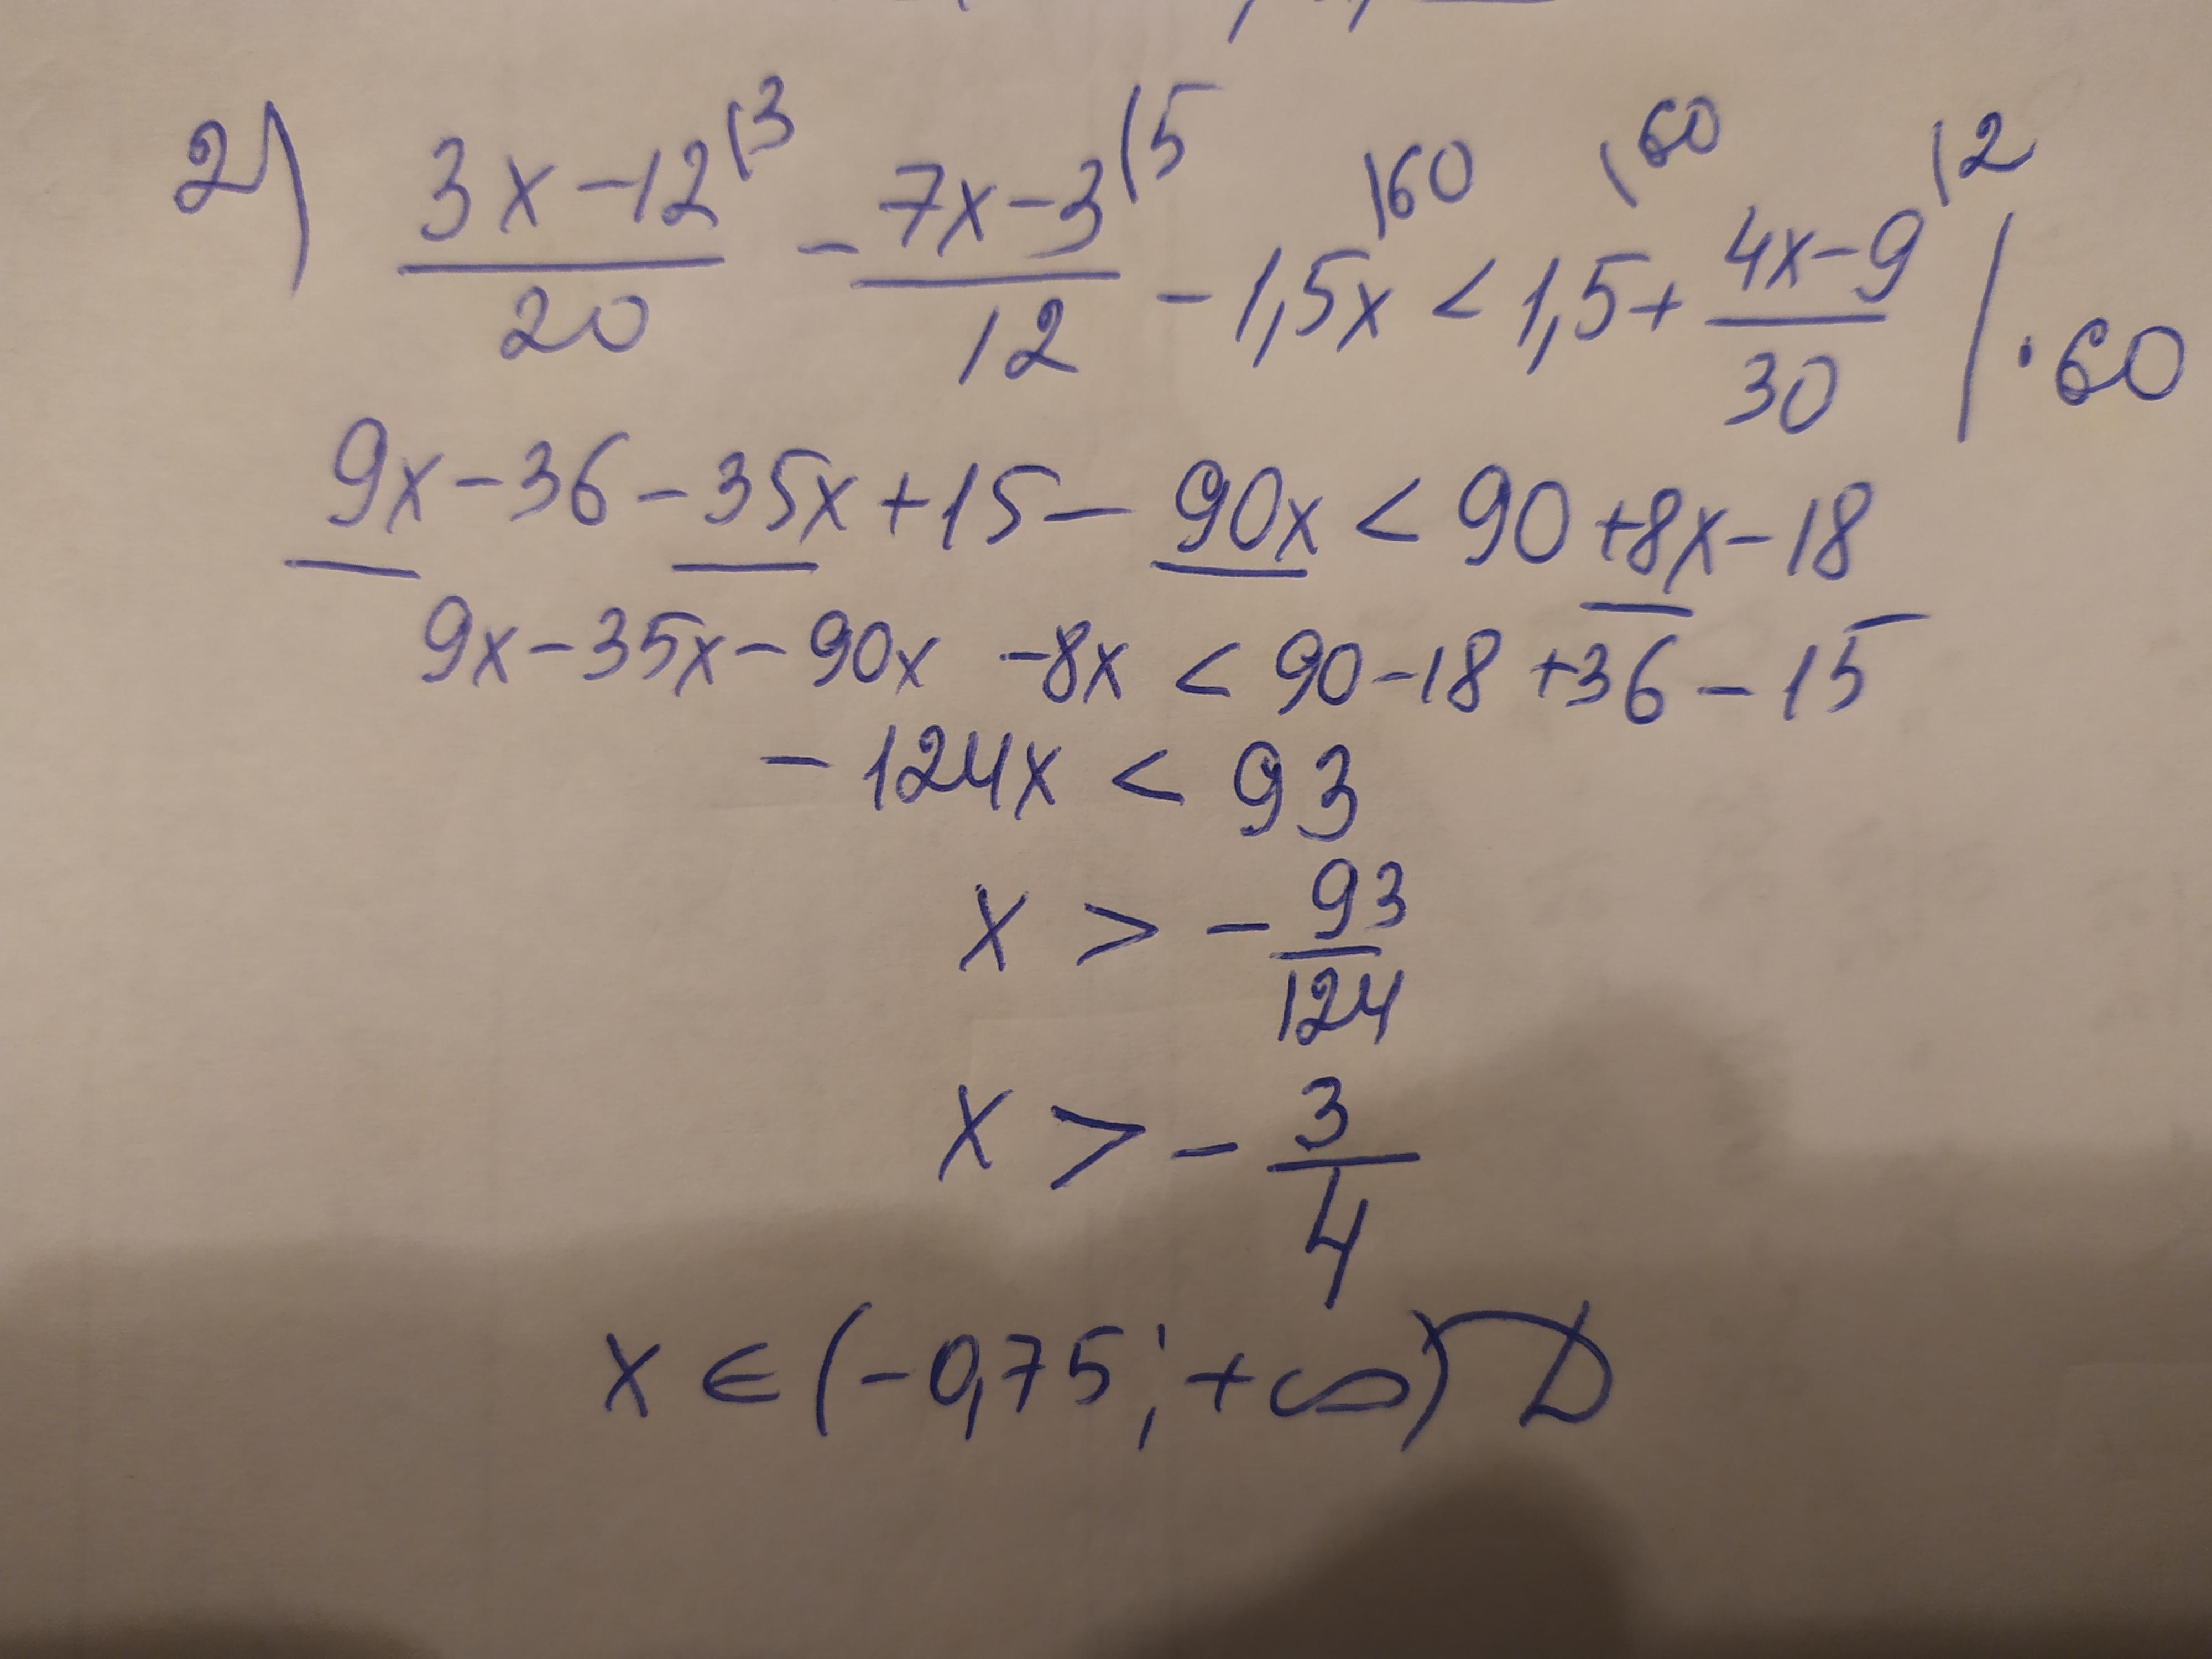 2) (3x-12)/20 |3 - (7x-3)/12 |5 - 1,5x |60 < 1,5 |60 + (4x-9)/30 |2 | · 60
9x - 36 - 35x + 15 - 90x < 90 + 8x - 18
9x - 35x - 90x - 8x < 90 - 18 + 36 - 15
- 124x < 93
x > - 93/124
x > - 3/4
x ∈ (-0,75; +∞) D